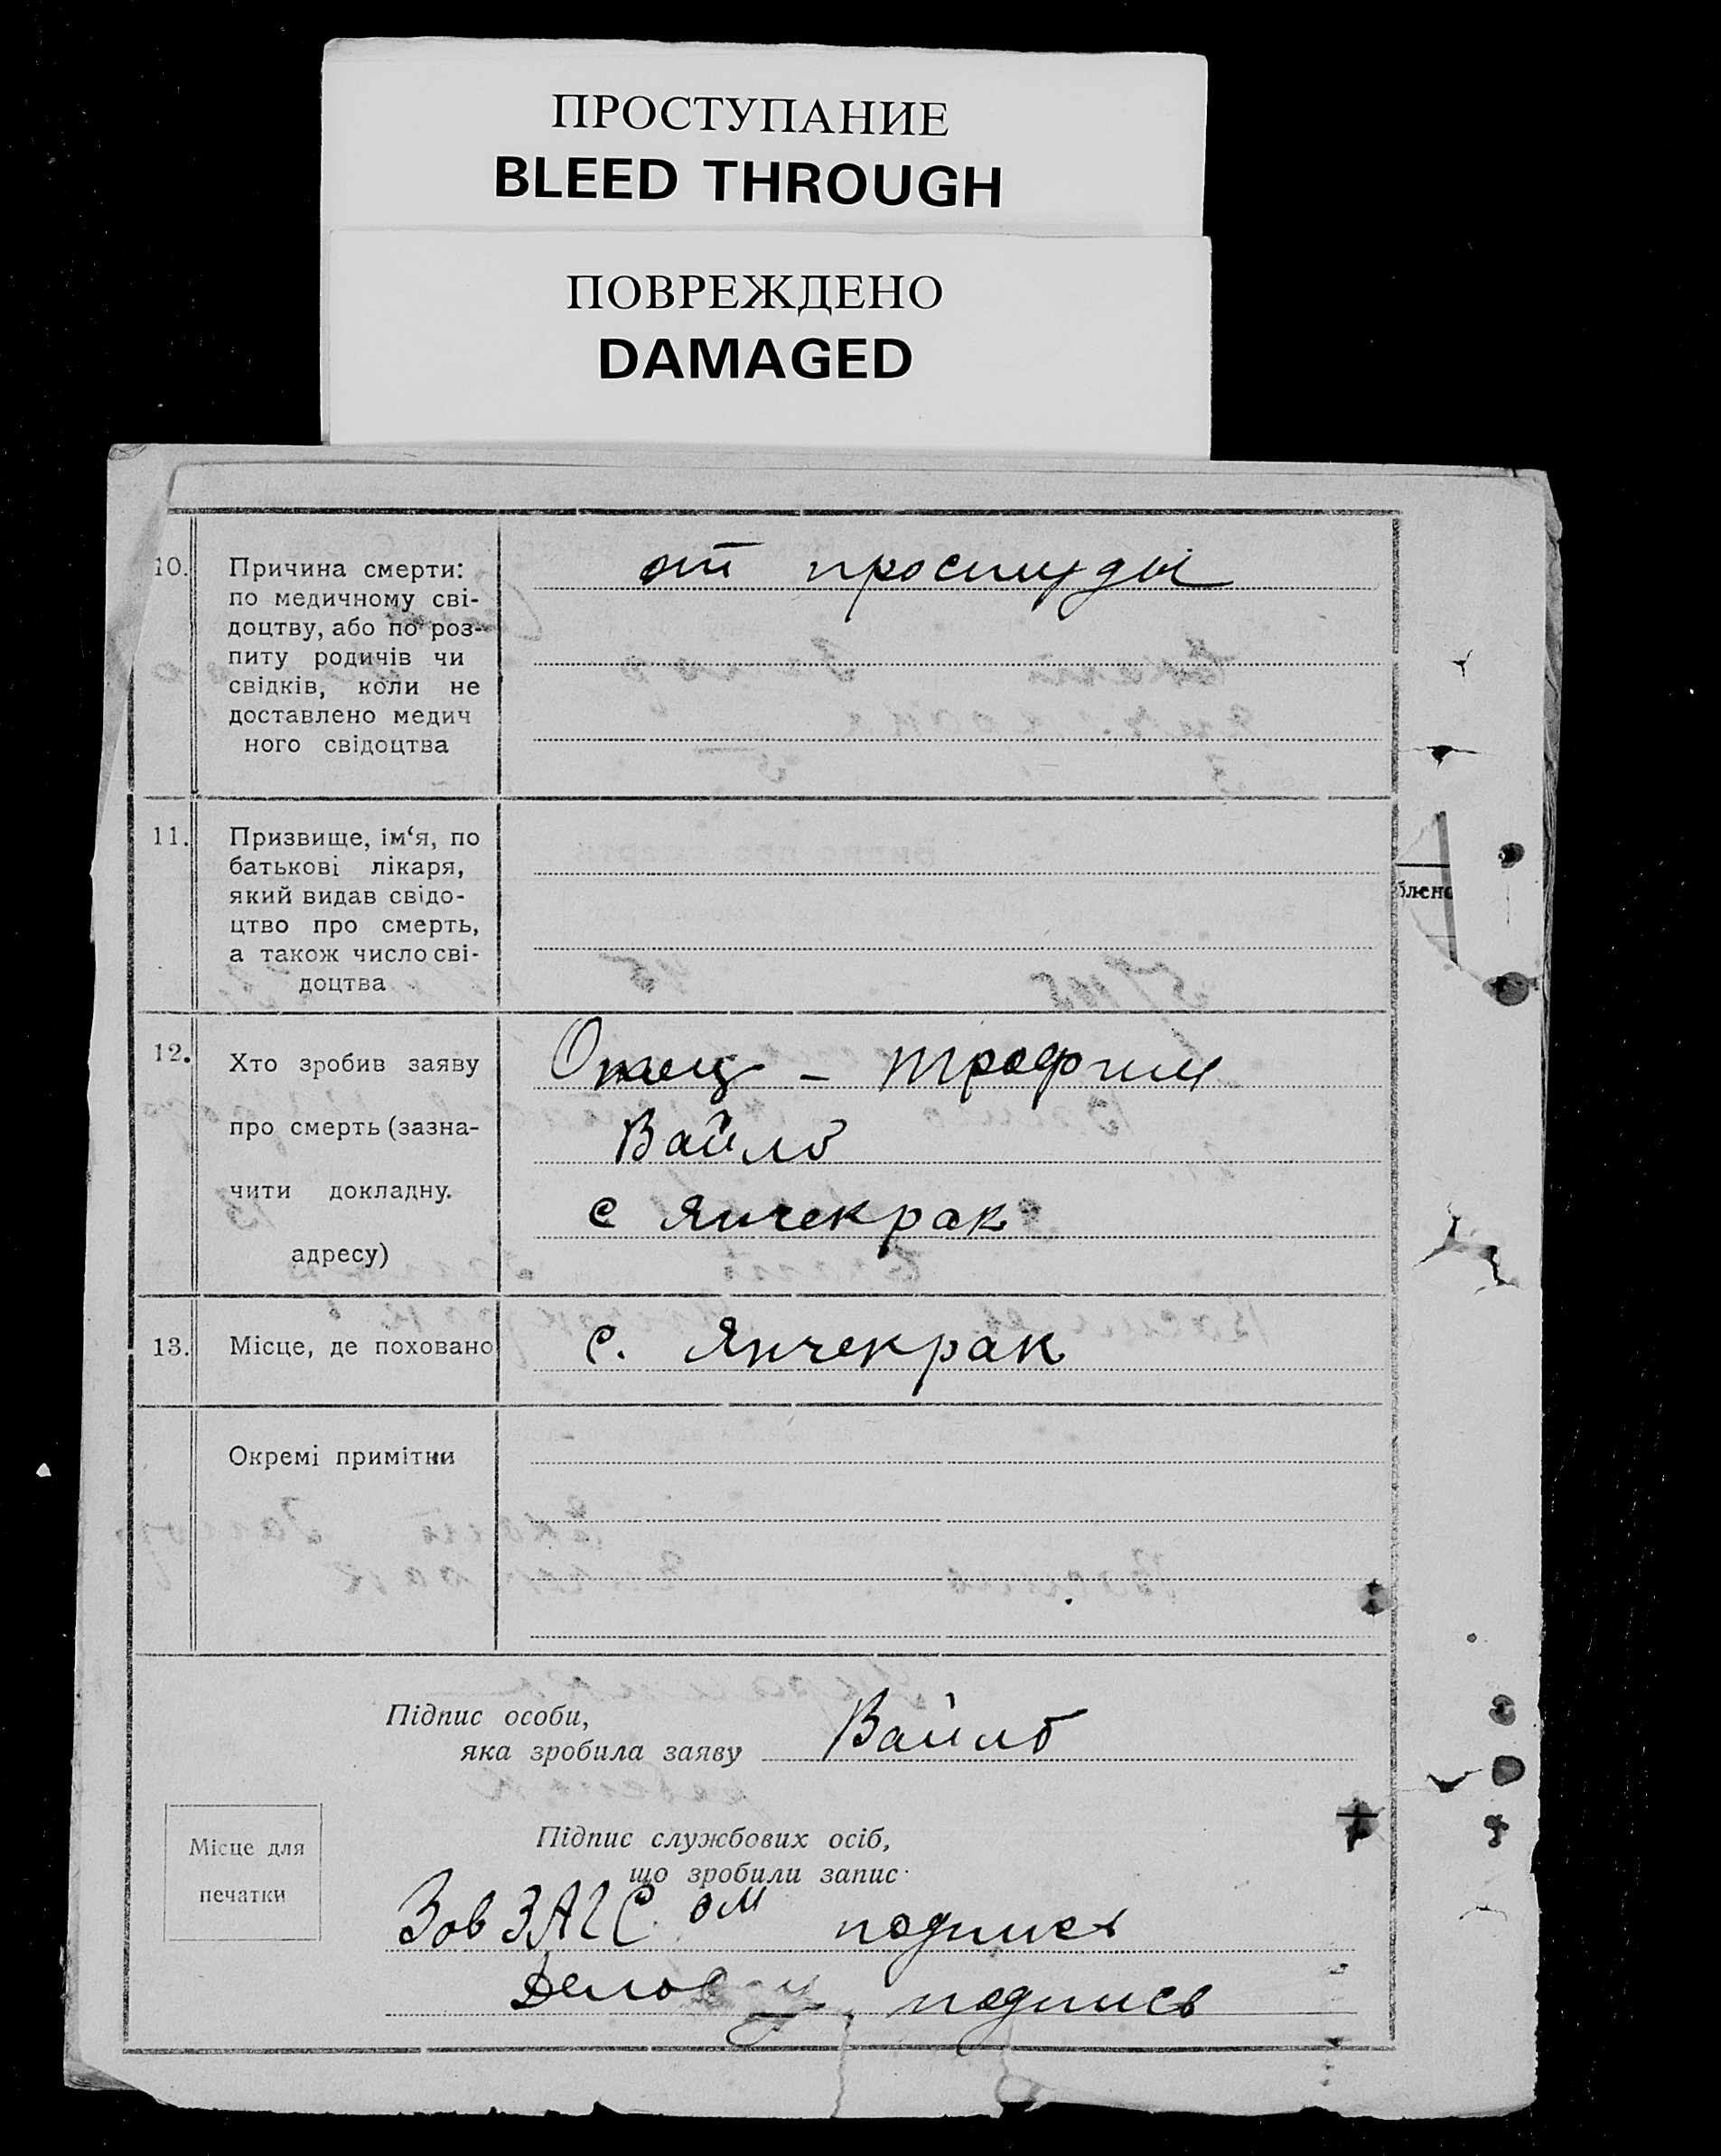 ПРОСТУПАНИЕ
BLEED THROUGH
ПОВРЕЖДЕНО
DAMAGED
10. Причина смерти: от простуды
по медичному сві-
доцтву, або по роз-
питу родичів чи
свідків, коли не
доставлено медич
ного свідоцтва
11. Призвище, ім‘я, по
батькові лікаря,
який видав свідо-
цтво про смерть,
а також число сві-
доцтва
блено
12. Хто зробив заяву Отец - Трофим
про смерть (зазна- Вайло
чити докладну. с Янчекрак
адресу)
13. Місце, де поховано с. Янчекрак
Окремі примітки
Підпис особи,
яка зробила заяву Вайло
Місце для
печатки
Підпис службових осіб,
що зробили запис
Зав ЗАГС ом подпись
подпись